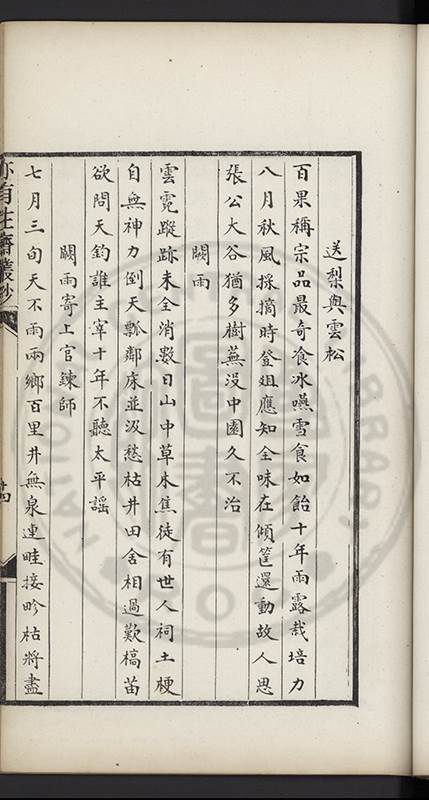 送梨與雲松
百果稱宗品最奇飡冰嚥雪食如飴十年雨露栽培力
八月秋風採摘時登俎應知全味在傾筐還動故人思
張公大谷猶多樹蕪没中園久不治
闕雨
雲霓蹤跡未全消數日山中草木焦徒有世人祠土梗
自無神力倒天瓢鄰床並汲愁枯井田舍相過歎槁苗
欲問天鈞誰主宰十年不聽太平謡
闕雨寄上官鍊師
七月三旬天不雨兩鄉百里井無泉連畦接畛枯將盡
亦有生齋叢鈔
廿四